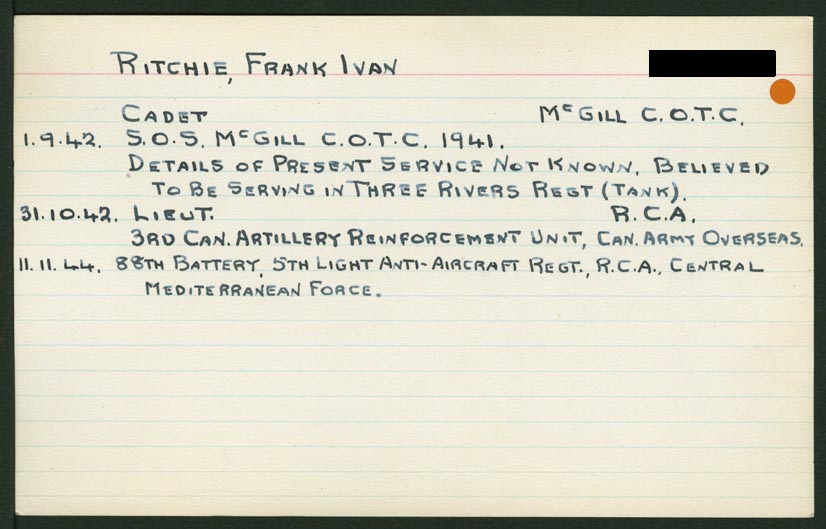 Ritchie, Frank Ivan
Cadet McGill C.O.T.C.
1.9.42. S.O.S. McGill C.O.T.C. 1941.
Details of Present Service Not Known. Believed
to be serving in Three Rivers Regt (Tank).
31.10.42. Lieut. R.C.A.
3rd Can. Artillery Reinforcement Unit, Can. Army Overseas.
11.11.44. 88th Battery, 5th Light Anti-Aircraft Regt., R.C.A., Central
Mediterranean Force.